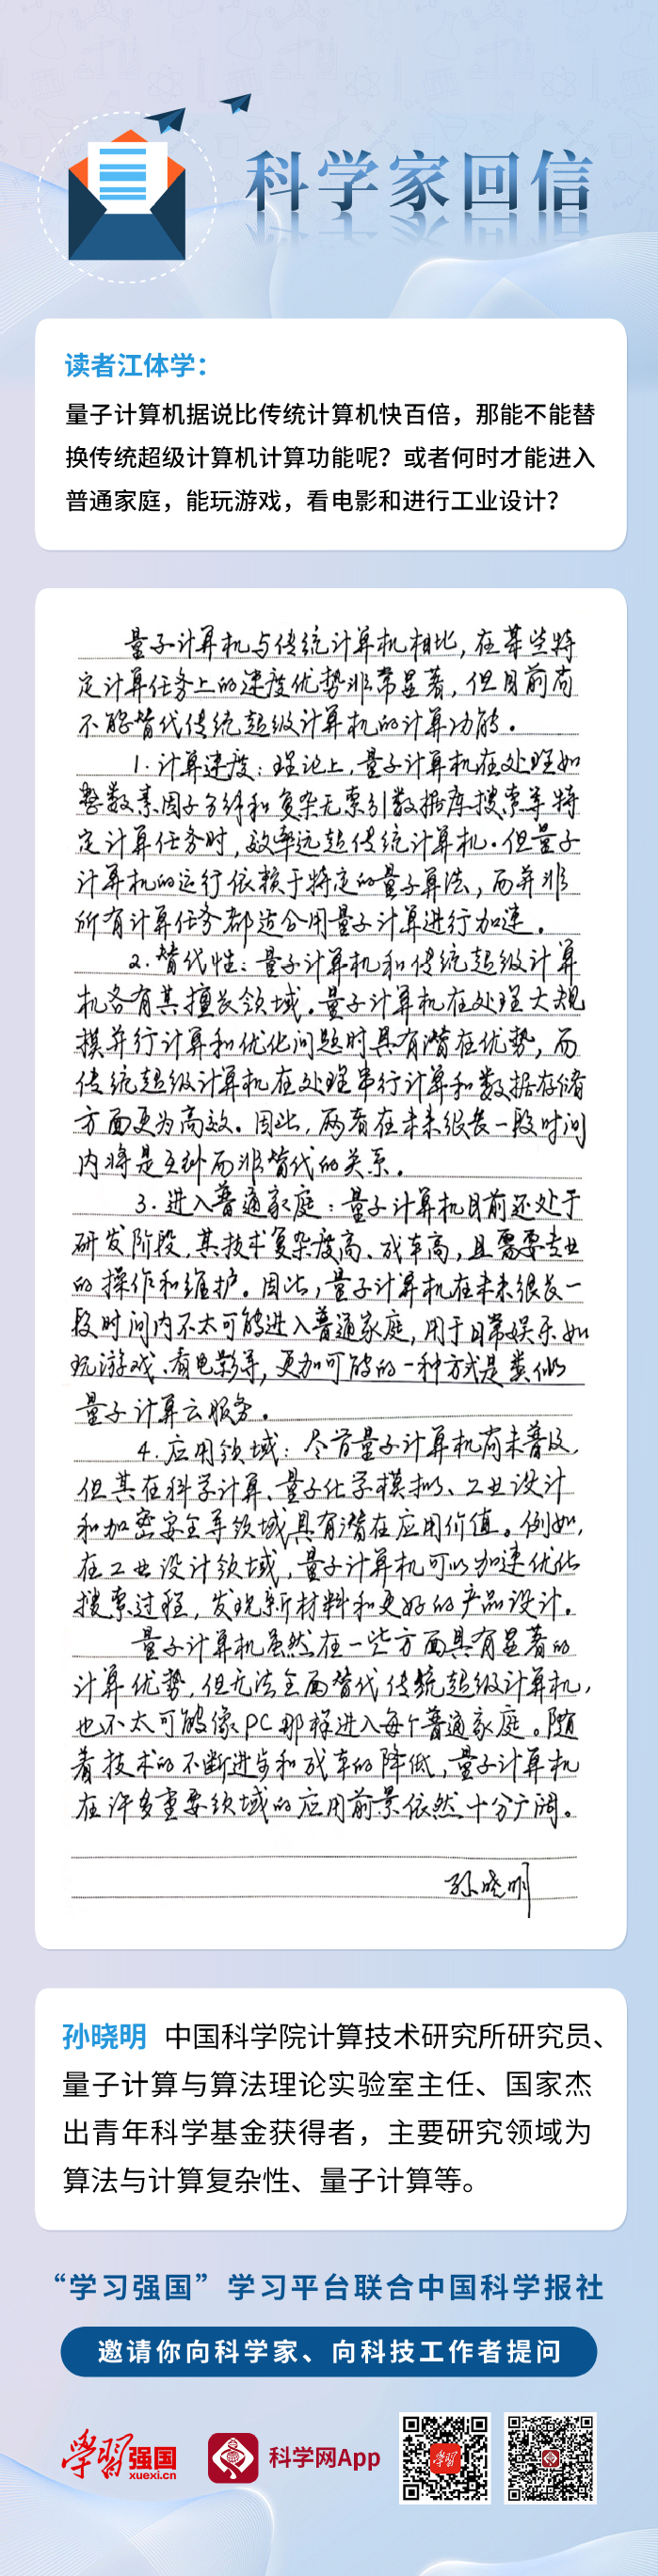 科学家回信
读者江体学：
量子计算机据说比传统计算机快百倍，那能不能替
换传统超级计算机计算功能呢？或者何时才能进入
普通家庭，能玩游戏，看电影和进行工业设计？
量子计算机与传统计算机相比，在某些特
定计算任务上的速度优势非常显著，但目前尚
不能替代传统超级计算机的计算功能。
1. 计算速度：理论上，量子计算机在处理如
整数素因子分解和复杂无索引数据库搜索等特
定计算任务时，效率远超传统计算机。但量子
计算机的运行依赖于特定的量子算法，而并非
所有计算任务都适合用量子计算进行加速。
2. 替代性：量子计算机和传统超级计算
机各有其擅长领域。量子计算机在处理大规
模并行计算和优化问题时具有潜在优势，而
传统超级计算机在处理串行计算和数据存储
方面更为高效。因此，两者在未来很长一段时间
内将是互补而非替代的关系。
3. 进入普通家庭：量子计算机目前还处于
研发阶段，其技术复杂度高、成本高，且需要专业
的操作和维护。因此，量子计算机在未来很长一
段时间内不太可能进入普通家庭，用于日常娱乐如
玩游戏、看电影等，更加可能的一种方式是类似
量子计算云服务。
4. 应用领域：尽管量子计算机尚未普及，
但其在科学计算、量子化学模拟、工业设计
和加密安全等领域具有潜在应用价值。例如，
在工业设计领域，量子计算机可以加速优化
搜索过程，发现新材料和更好的产品设计。
量子计算机虽然在一些方面具有显著的
计算优势，但无法全面替代传统超级计算机，
也不太可能像PC那样进入每个普通家庭。随
着技术的不断进步和成本的降低，量子计算机
在许多重要领域的应用前景依然十分广阔。
孙晓明
孙晓明 中国科学院计算技术研究所研究员、
量子计算与算法理论实验室主任、国家杰
出青年科学基金获得者，主要研究领域为
算法与计算复杂性、量子计算等。
“学习强国”学习平台联合中国科学报社
邀请你向科学家、向科技工作者提问
学习强国
xuexi.cn
科学网App
学习